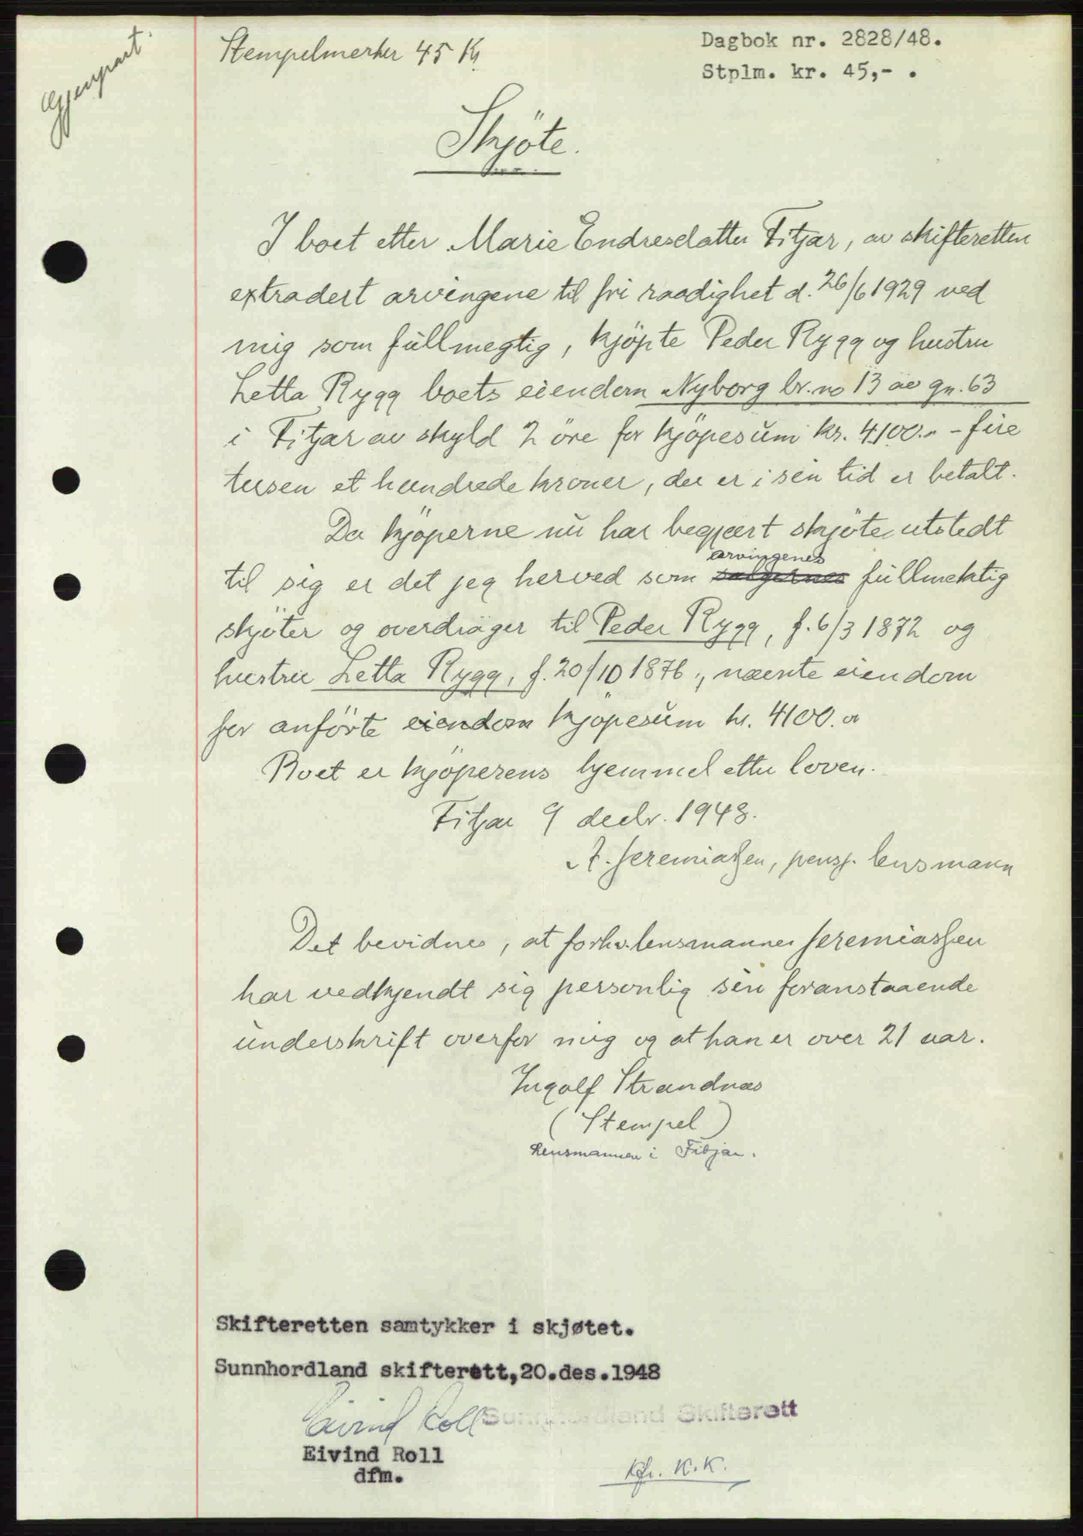 Gjenpart.
Stempelmerker 45 Kr
Dagbok nr. 2828/48.
Stplm. kr. 45,- .
Skjöte.
I boet etter Marie Endresdatter Fitjar, av skifteretten
extradert arvingene til fri raadighet d. 26/6 1929 ved
mig som fullmegtig, kjöpte Peder Rygg og hustru
Letta Rygg boets eiendom Nyborg br.no 13 av gn. 63
i Fitjar av skyld 2 öre for kjöpesum kr. 4100.- - fire
tusen et hundrede kroner, der er i sin tid er betalt.
Da kjöperne nu har begjært skjöte utstedt
arvingenes
til sig er det jeg herved som sælgernes fullmektig
skjöter og overdrager til Peder Rygg, f. 6/3 1872 og
hustru Letta Rygg, f. 20/10 1876, nævnte eiendom
for anförte eiendom kjöpesum kr. 4100.-
Boet er kjöperens hjemmel etter loven.
Fitjar 9 decbr. 1948.
A. Jeremiassen, pensj. lensmann
Det bevidnes, at forhv. lensmannen Jeremiassen
har vedkjendt sig personlig sin foranstaaende
underskrift overfor mig og at han er over 21 aar.
Ingolf Strandnæs
(Stempel)
Lensmannen i Fitjar.
Skifteretten samtykker i skjøtet.
Sunnhordland skifterett,20.des.1948
Eivind Roll
Sunnhordland Skifterett
Eivind Roll
dfm.
K.K.